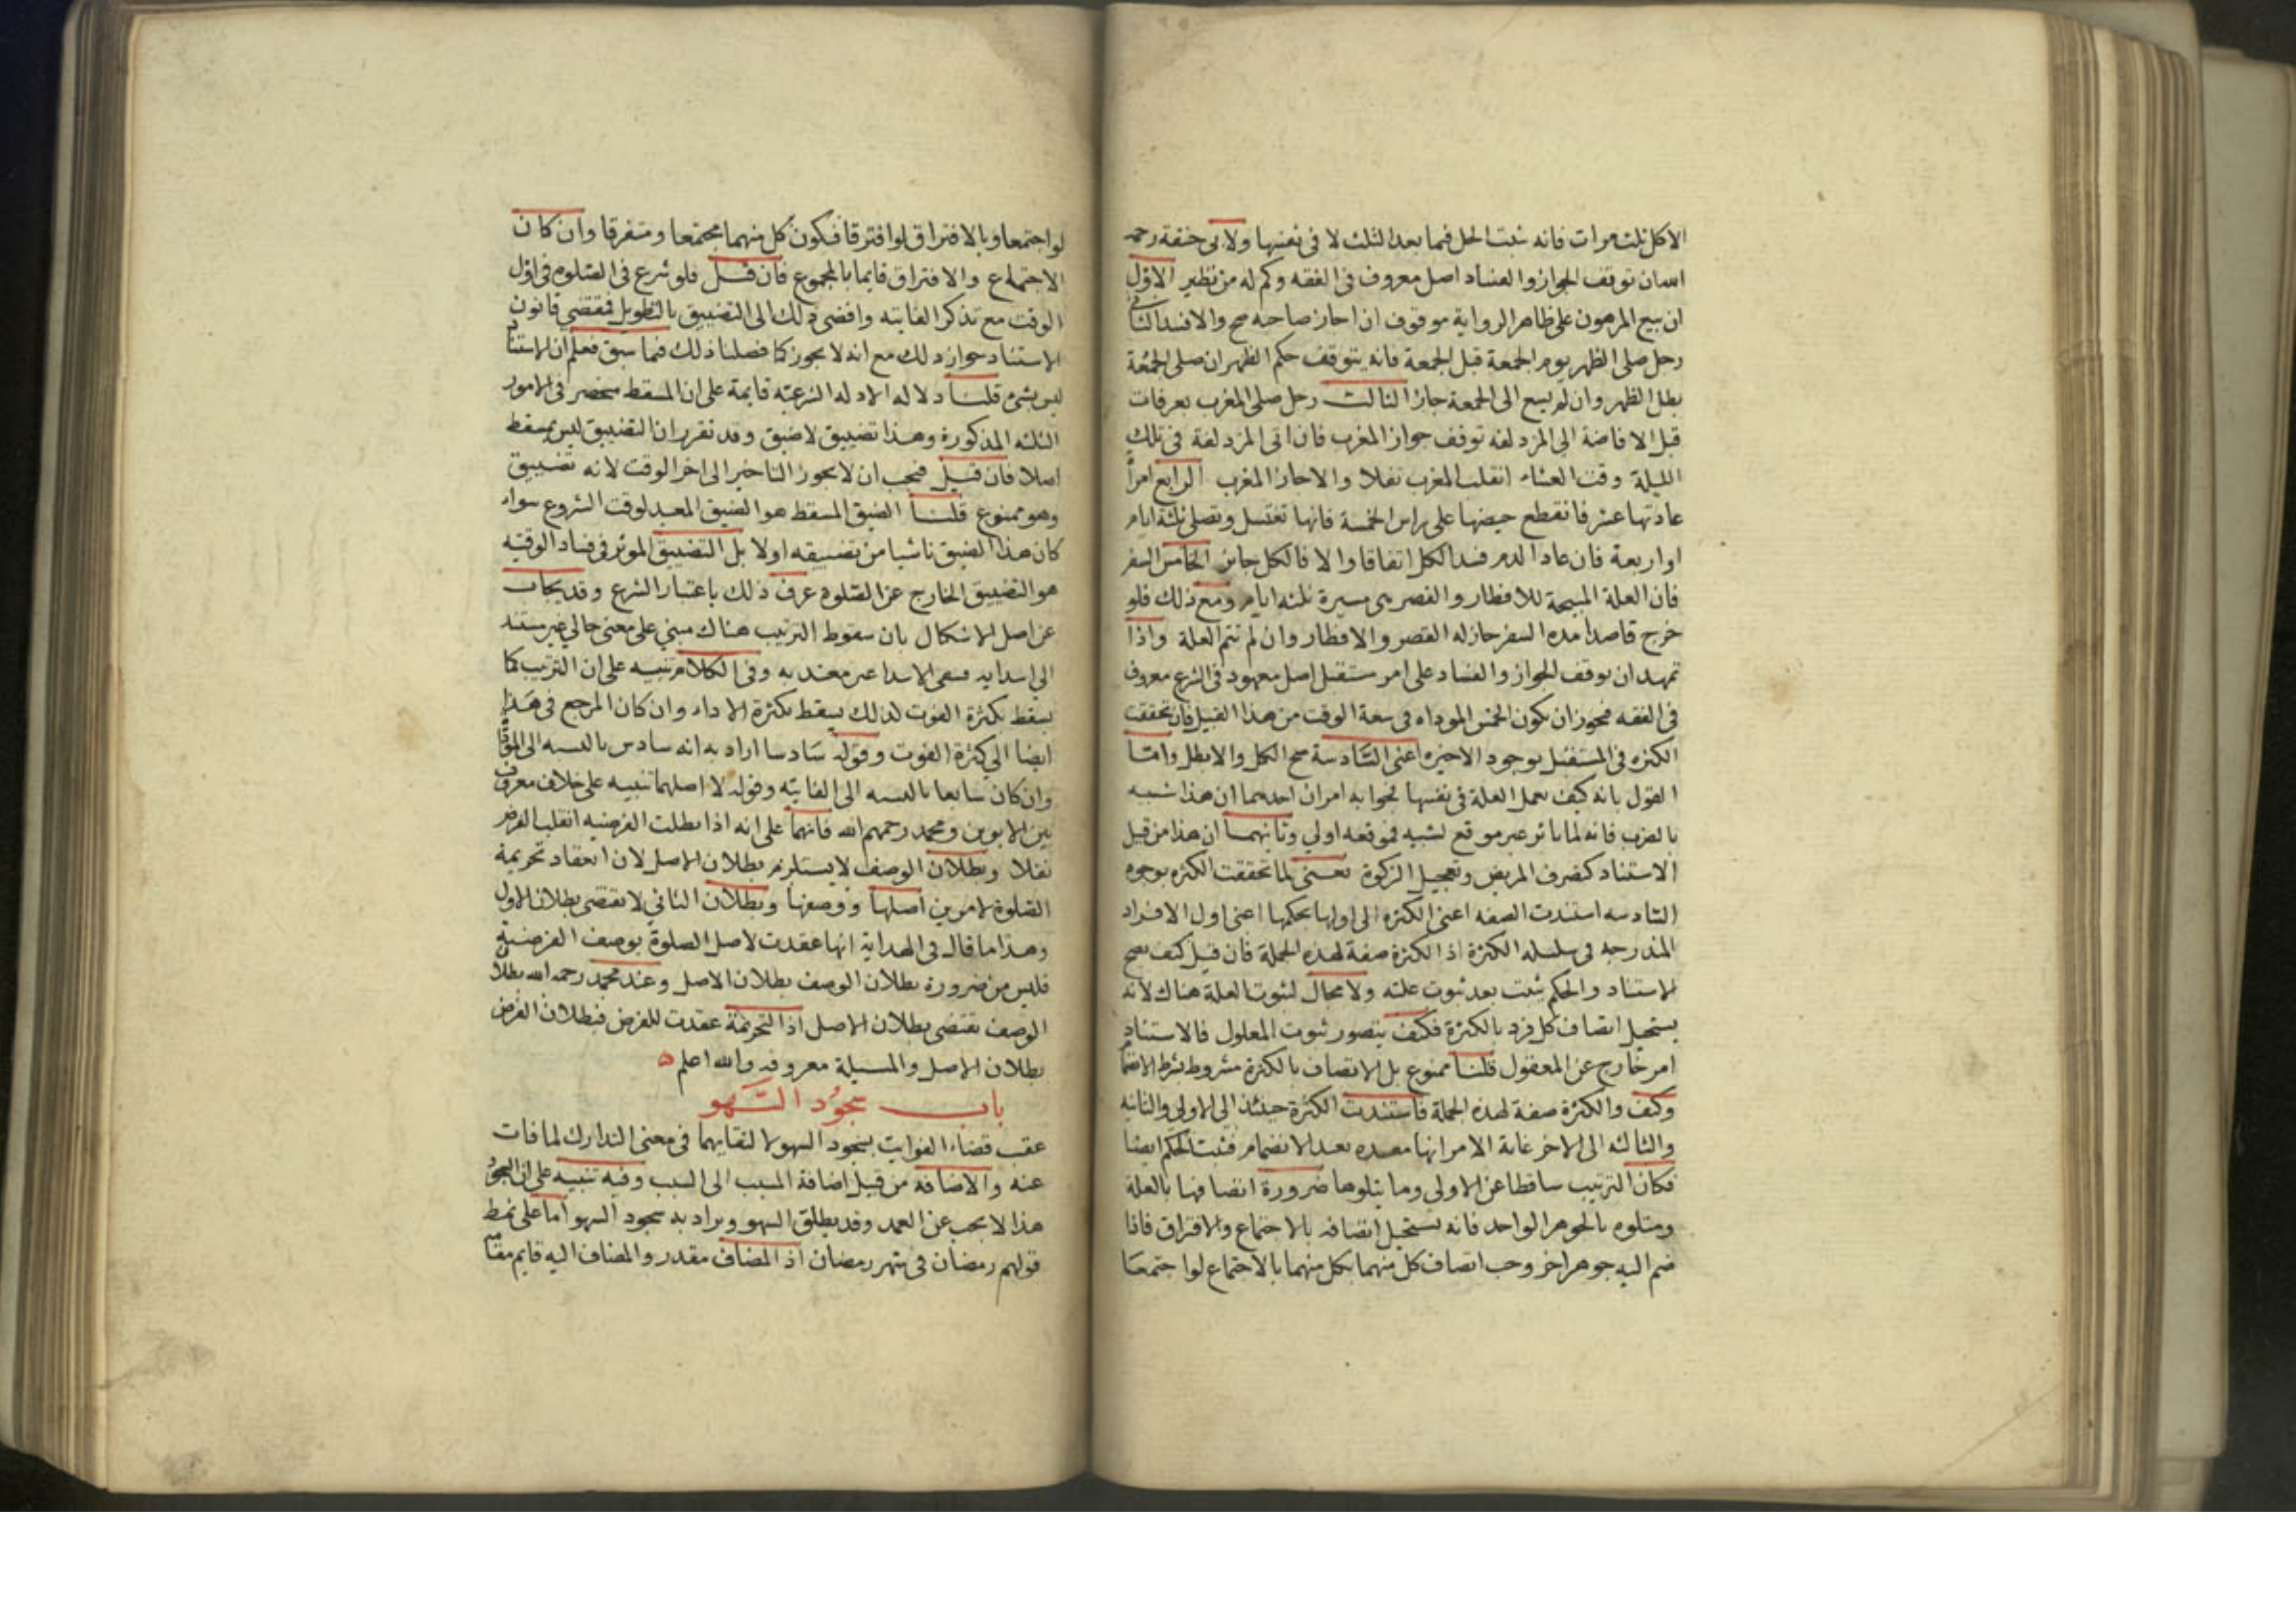 الاكل ثلث مرات فانه يثبت الحل فيما بعد الثلث لا في نفسها ولابي حنيفة رحمه
ان توقف الجواز والفساد اصل معروف في الفقه وكم له من نظير الاول
ان بيع المرهون على ظاهر الرواية موقوف ان اجاز صاحبه صح والا فسد الثاني
رجل صلى الظهر يوم الجمعة قبل الجمعة فانه يتوقف حكم الظهر ان صلى الجمعة
بطل الظهر وان لم يسع الى الجمعة جاز الثالث رجل صلى المغرب بعرفات
قبل الافاضة الى المزدلفة توقف جواز المغرب فان اتى المزدلفة في تلك
الليلة وقت العشاء انقلب المغرب نفلا والا جاز المغرب الرابع امرأة
عادتها عشر فانقطع حيضها على راس الخمسة فانها تغتسل وتصلي ثلثة ايام
او اربعة فان عاد الدم فسد الكل اتفاقا والا فالكل جايز الخامس السفر
فان العلة المبيحة للافطار والقصر هي مسيرة ثلثة ايام ومع ذلك فلو
خرج قاصدا مدة السفر جاز له القصر والافطار وان لم تتم العلة واذا
تمهد ان توقف الجواز والفساد على امر مستقبل اصل معهود في الشرع معروف
في الفقه فيجوز ان يكون الخمس الموداه في سعة الوقت من هذا القبيل فان تحققت
الكثرة في المستقبل بوجود الاخيرة اعني السادسة صح الكل والا بطل واما
القول بانه كيف تعمل العلة في نفسها فجوابه امران احدهما ان هذا شبيه
بالضرب فانه لما يأثر عبر موقع لشبه فموقعه اولى وثانيهما ان هذا من قبيل
الاستناد كتصرف المريض وتعجيل الزكوة يعني لما تحققت الكثرة بوجود
السادسه استندت الصفه اعني الكثرة الى اولها بحكمها اعني اول الافراد
المندرجه في سلسله الكثرة اذ الكثرة صفة لهذه الجملة فان قيل كيف يصح
الاستناد والحكم يثبت بعد ثبوت علته ولا مجال لثبوت العلة هناك لانه
يستحيل اتصاف كل فرد بالكثرة فكيف يتصور ثبوت المعلول فالاستناد
امر خارج عن المعقول قلنا ممنوع بل الاتصاف بالكثرة مشروط بشرط الانضما
وكيف والكثرة صفة لهذه الجملة فاستندت الكثرة حينئذ الى الاولى والثانيه
والثالثه الى الاخر غاية الامر انها بعد الانضمام فيثبت الحكم ايضا
فكان الترتيب ساقطا عن الاولى وما يتلوها ضرورة اتصافها بالعلة
ومثلوه بالجوهر الواحد فانه يستحيل اتصافه بالاجتماع والافتراق فاذا
ضم اليه جوهر اخر وجب اتصاف كل منهما بكل منهما بالاجتماع لو اجتمعا
لو اجتمعا وبالافتراق لو افترقا فيكون كل منهما مجتمعا ومتفرقا وان كان
الاجتماع والافتراق قايما بالمجموع فان قيل فلو شرع في الصلوة في اول
الوقت مع تذكر الفايته وافضى ذلك الى التضييق بالتطويل فمقتضى قانون
الاستناد جواز ذلك مع انه لا يجوز كما فصلنا ذلك فيما سبق فعلم ان الاستنا
ليس بشيء قلنا دلالة الادلة الشرعية قايمة على ان المسقط منحصر في الامور
الثلثه المذكورة وهذا تضييق لا ضيق وقد تقرر ان التضييق ليس بمسقط
اصلا فان قيل فيجب ان لا يجوز التاخير الى اخر الوقت لانه تضييق
وهو ممنوع قلنا الضيق المسقط هو الضيق المعبد لوقت الشروع سواء
كان هذا الضيق ناشيا من تضييقه اولا بل التضييق الموثر في فساد الوقتيه
هو التضييق الخارج عن الصلوة عرف ذلك باعتبار الشرع وقد يجاب
عن اصل الاشكال بان سقوط الترتيب هناك مبني على معنى حالي غير مستند
الى ابتدايه فبقي الابتدا غير معتد به وفي الكلام تنبيه على ان الترتيب كما
يسقط بكثرة الفوت لذلك يسقط بكثرة الاداء وان كان المرجع في هذا
ايضا الى كثرة الفوت وقوله سادسا اراد به انه سادس بالنسبه الى الموداه
وان كان سابعا بالنسبه الى الفايته وقوله لا اصلهما تنبيه على خلاف معروف
بين الابوين ومحمد رحمهم الله فانهما على انه اذا بطلت الفرضيه انقلب الفرض
نفلا وبطلان الوصف لا يستلزم بطلان الاصل لان انعقاد تحريمة
الصلوة لامرين اصلها ووصفها وبطلان الثاني لا يقتضي بطلان الاول
وهذا ما قال في الهداية انها عقدت لاصل الصلوة بوصف الفرضية
فليس من ضرورة بطلان الوصف بطلان الاصل وعند محمد رحمه الله بطلا
الوصف يقتضي بطلان الاصل اذ التحريمة عقدت للفرض فبطلان الفرض
بطلان الاصل والمسيلة معروفه والله اعلم
باب سجود السهو
عقب قضاء الفوايت بسجود السهو لالتقايهما في معنى التدارك لما فات
عنه والاضافة من قبيل اضافة المسبب الى السبب وفيه تنبيه على ان السجود
هذا لا يجب عن العمد وقد يطلق السهو ويراد به سجود السهو اما على نمط
قولهم رمضان في شهر رمضان اذ المضاف مقدر والمضاف اليه قايم مقا